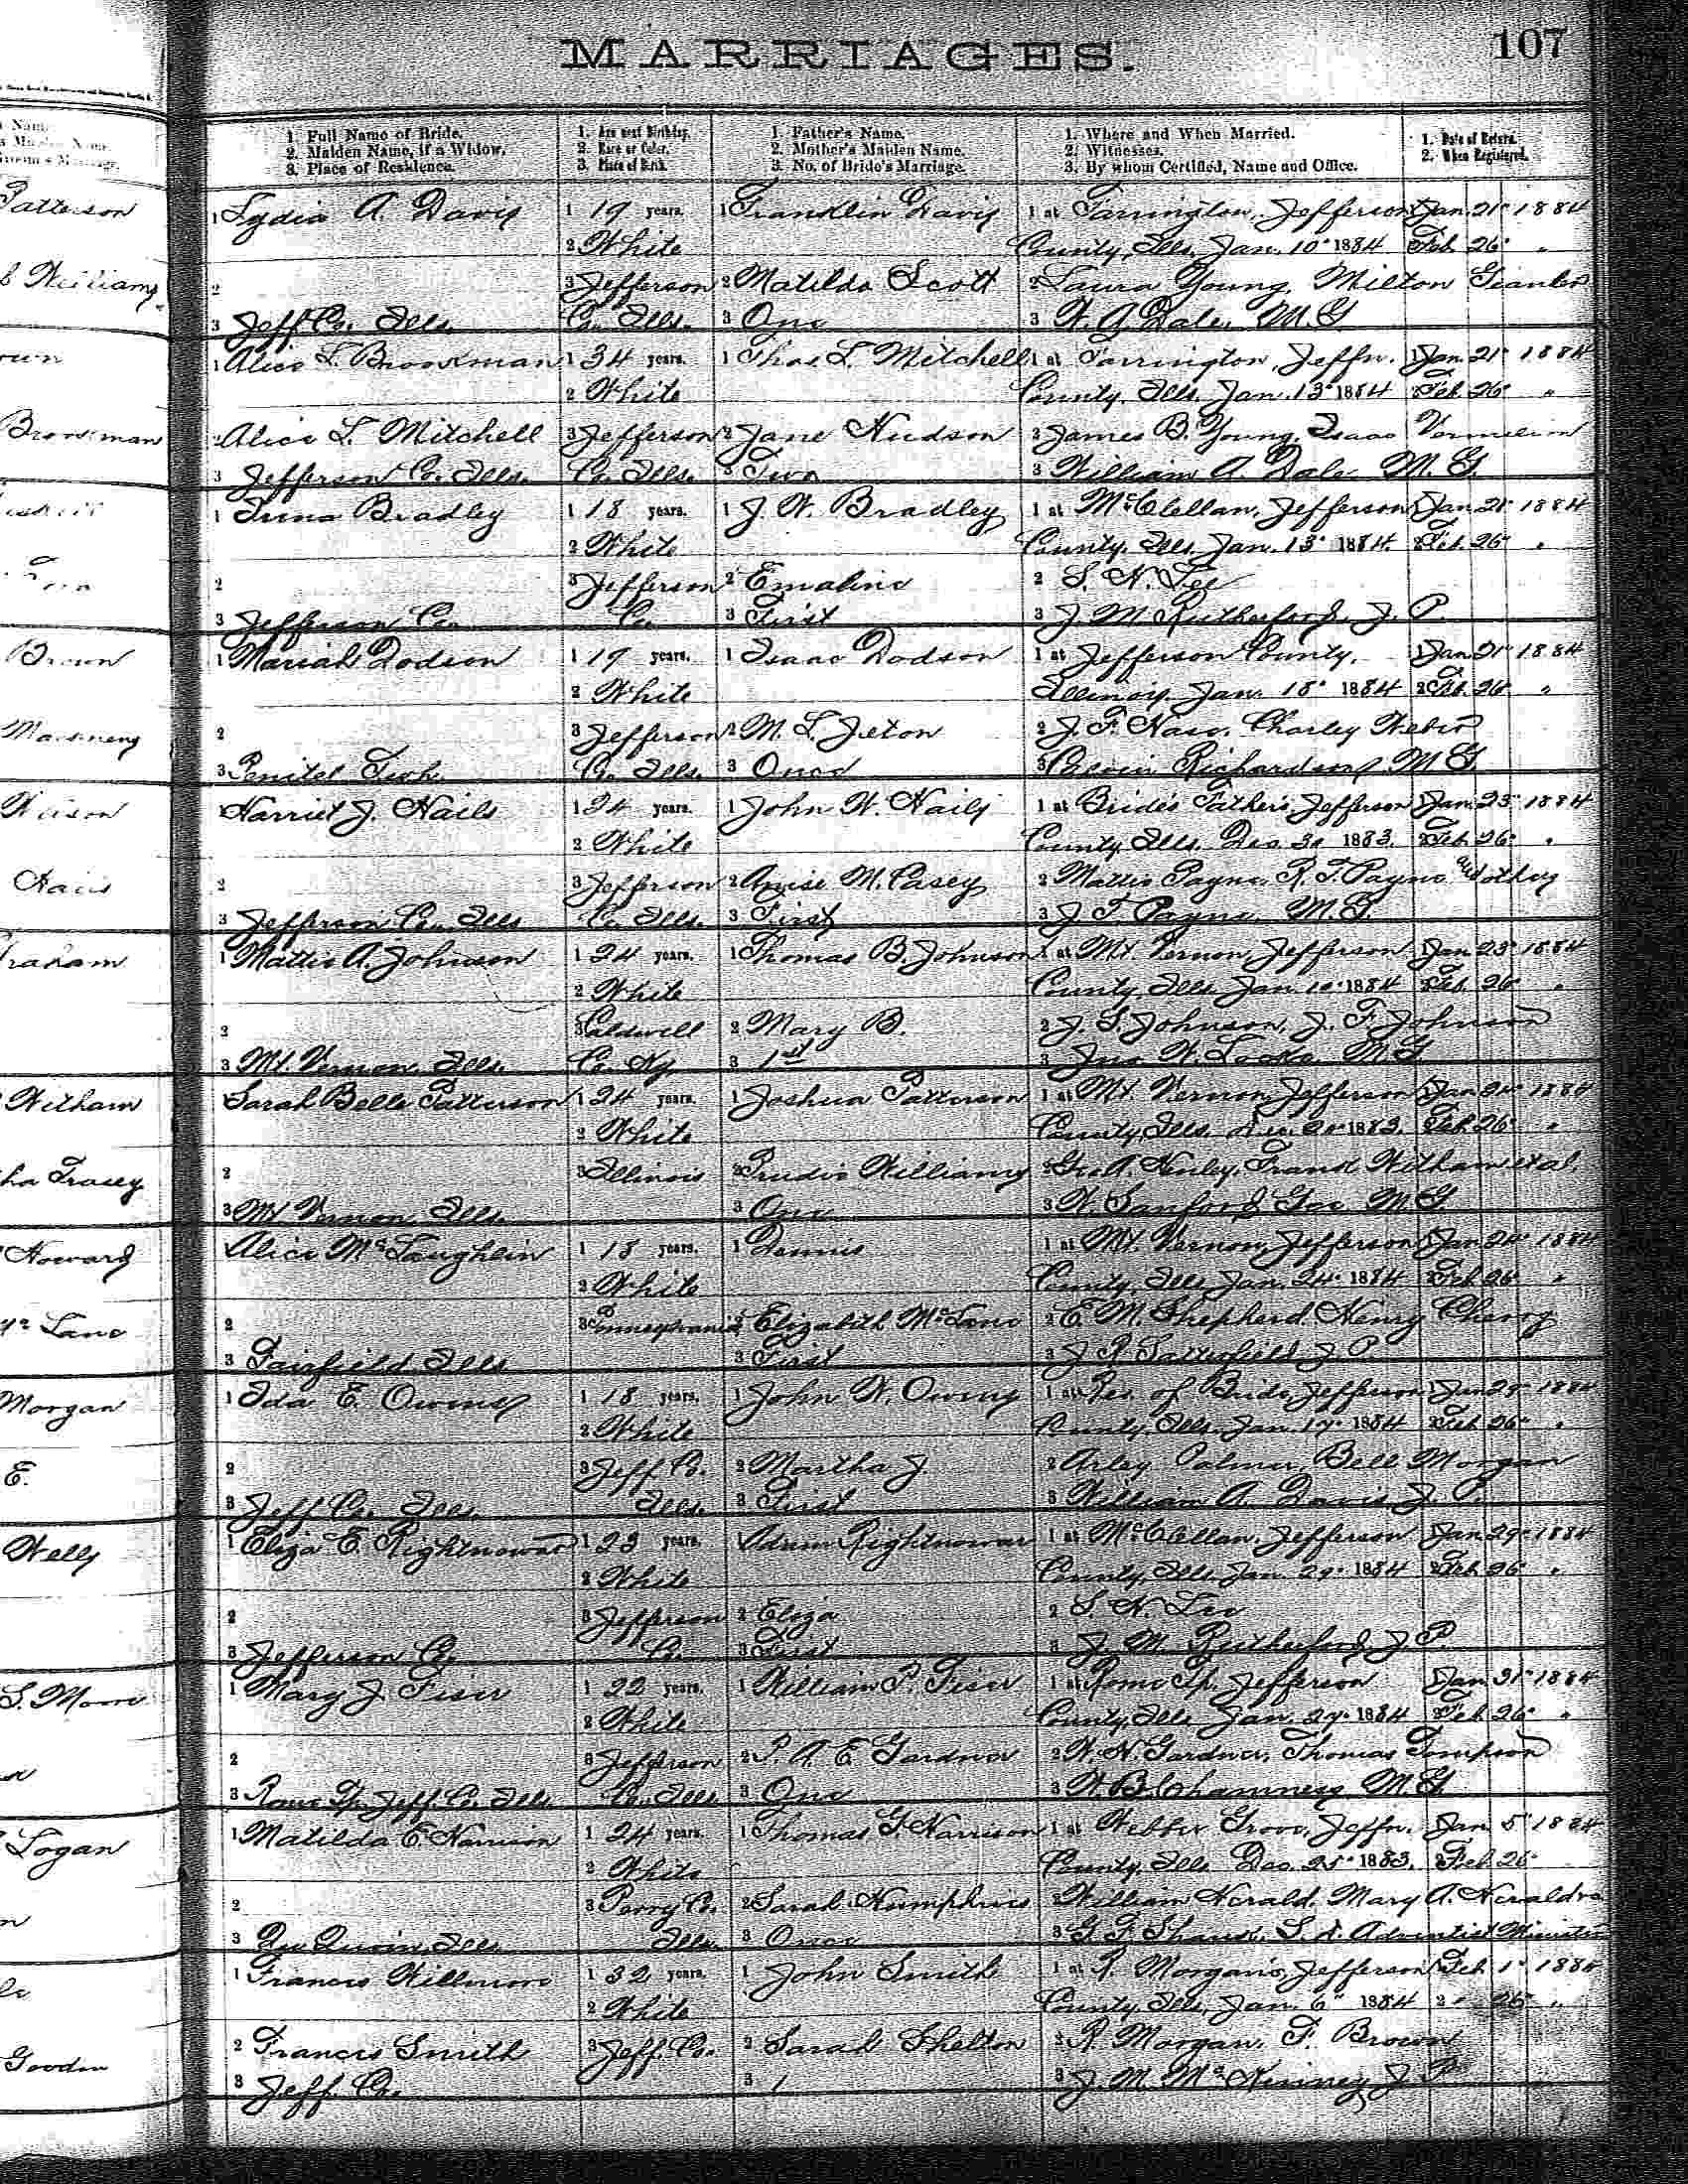 MARRIAGES.
107
1. Full Name of Bride.
2. Maiden Name, if a Widow.
3. Place of Residence.
1. Age next Birthday.
2. Race or Color.
3. Place of Birth.
1. Father's Name.
2. Mother's Maiden Name.
3. No. of Bride's Marriage.
1. Where and When Married.
2. Witnesses.
3. By whom Certified, Name and Office.
1. Date of Return.
2. When Registered.
Patterson
1 Lydia A. Davis 1 19 years. 1 Franklin Davis 1 at Farrington, Jefferson Jan. 21" 1884
2 White County, Ills. Jan. 10" 1884 Feb. 26" "
Williams
2 3 Jefferson 2 Matilda Scott 2 Laura Young, Milton
3 Jeff. Co. Ills. Co. Ills. 3 One 3 W. A. Dale, M.G.
1 Alice L. Brookman 1 34 years. 1 Thos. L. Mitchell 1 at Farrington, Jeffn. Jan. 21" 1884
2 White County, Ills. Jan. 13" 1884 Feb. 26" "
Brookman
2 Alice L. Mitchell 3 Jefferson 2 Jane Hudson 2 James B. Young, Isaac Vermilion
3 Jefferson Co. Ills. Co. Ills. 3 Two 3 William A. Dale M.G.
1 Bradley 1 18 years. 1 J. W. Bradley 1 at McClellan, Jefferson Jan. 21" 1884
2 White County, Ills. Jan. 13" 1884. 2 Feb. 26" "
2 3 Jefferson 2 Emaline 2 S. N. Lee
3 Jefferson Co. Co. 3 First 3 J. M. Rutherford, J. P.
Brown
1 Mariah Dodson 1 19 years. 1 Isaac Dodson 1 at Jefferson County, Jan. 21" 1884
2 White Illinois, Jan. 18" 1884 2 Feb. 26" "
2 3 Jefferson 2 M. L. Jeton 2 J. F. Charley
3 Co. Ills. 3 Once 3 Richardson, M.G.
1 Harriet J. Hails 1 24 years. 1 John W. Hails 1 at Bride's Father's, Jefferson Jan. 23" 1884
2 White County, Ills. Dec. 30 1883. 2 Feb. 26" "
2 3 Jefferson 2 M. Casey 2 Mattie Payne, R. T. Payne & others
3 Jefferson Co. Ills Co. Ills. 3 First 3 J. T. Payne, M.G.
Graham
1 Mattie A. Johnson 1 24 years. 1 Thomas B. Johnson 1 at Mt. Vernon, Jefferson Jan. 23" 1884
2 White County, Ills. Jan. 10" 1884 Feb. 26" "
2 3 Caldwell 2 Mary B. 2 J. S. Johnson, J. F. Johnson
3 Mt. Vernon, Ills. Co. Ky. 3 1st 3 Jno. W. Locke M.G.
Witham
Sarah Belle Patterson 1 24 years. 1 Joshua Patterson 1 at Mt. Vernon, Jefferson Jan. 24" 1884
2 White County, Ills. 1883. Feb. 26" "
Tracey
2 3 Illinois 2 Prudie Williams 2 Geo. A. Henley, Frank Witham et al.
3 Mt. Vernon, Ills. 3 One 3 W. Sanford Gee M.G.
Howard
Alice McLaughlin 1 18 years. 1 Dennis 1 at Mt. Vernon, Jefferson Jan. 24" 1884
2 White County, Ills. Jan. 24" 1884 2 Feb. 26" "
Lane
2 3 Pennsylvania 2 Elizabeth 2 E. M. Shepherd, Henry Cherry
3 Fairfield Ills 3 First 3 J. R. Satterfield J. P.
Morgan
1 Ida E. Owens 1 18 years. 1 John W. Owens 1 at Res. of Bride, Jefferson 1884
2 White County, Ills. Jan. 17" 1884 2 Feb. 26" "
E.
2 3 Jeff. Co. 2 Martha J. 2 Arley Palmer, Bell Morgan
3 Jeff. Co. Ills. Ills. 3 First 3 William A. Davis, J. P.
Wells
1 Eliza E. Rightnowar 1 23 years. 1 Adam Rightnowar 1 at McClellan, Jefferson Jan. 29" 1884
2 White County, Ills. Jan. 1884 2 Feb. 26" "
2 3 Jefferson 2 Eliza 2 S. N. Lee
3 Jefferson Co. Co. 3 First 3 J. M. Rutherford, J. P.
1 Mary J. Fiser 1 22 years. 1 William P. Fiser 1 at Rome Tp. Jefferson Jan. 31" 1884
2 White County, Ills. Jan. 27" 1884 2 Feb. 26" "
2 3 Jefferson 2 P. A. E. Gardner 2 W. H. Gardner, Thomas Tompson
3 Rome Tp. Jeff. Co. Ills. Co. Ills 3 One 3 W. B. Chamness, M.G.
Logan
1 Matilda E. Harrison 1 24 years. 1 Thomas G. Harrison 1 at Webber Grove, Jeffn. Jan. 5" 1884
2 White County, Ills. Dec. 25" 1883. 2 Feb. 26"
2 3 Perry Co. 2 Sarah Humphries 2 William Herald, Mary A. Herald
3 Du Quoin, Ills. Ills. 3 Once 3 G. F. S. D. Adventist Minister
1 Francis Willmore 1 32 years. 1 John Smith 1 at R. Morgan's, Jefferson Feb. 1" 1884
2 White County, Ills., Jan. 6" 1884 2 " 26" "
2 Francis Smith 3 Jeff. Co. 2 Sarah Shelton 2 R. Morgan, F. Brown
3 Jeff. Co. 3 1 3 J. M. McKinney J. P.